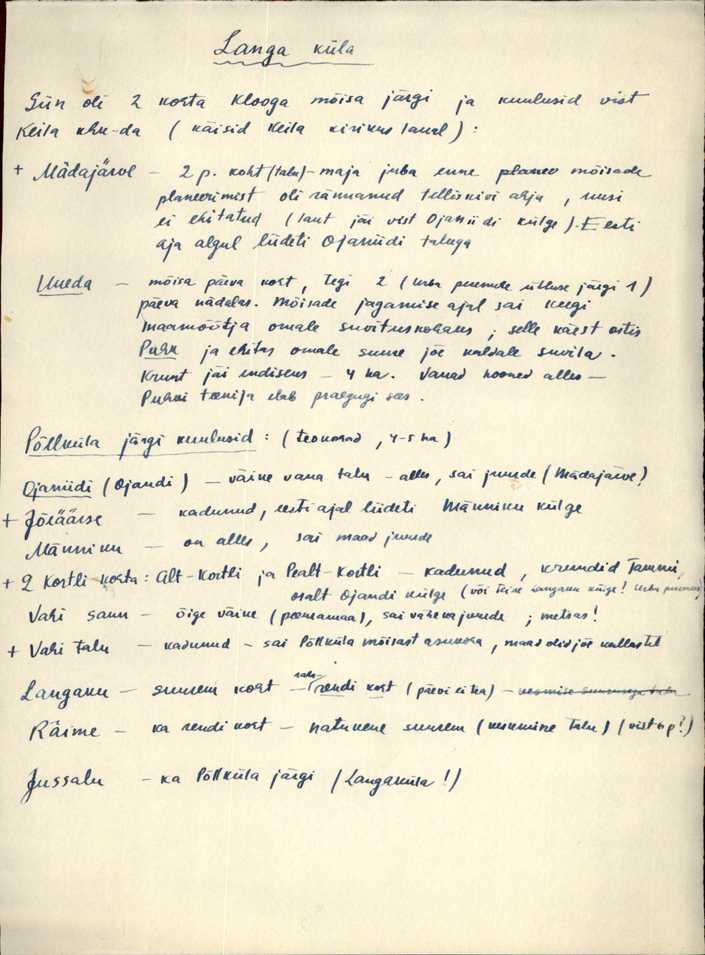 Langa küla
Siin oli 2 kohta Klooga mõisa järgi ja kuulusid vist
Keila khk-da (käisid Keila kirikus laual):
+ Mädajärve – 2 p. koht (talu) – maja juba enne planev mõisade
planeerimist oli rännanud telliskivi ahju, uusi
ei ehitatud (laut jäi vist Ojaniidi külge). Eesti
aja algul liideti Ojaniidi taluga
Uueda – mõisa päeva koht, tegi 2 (Urba peremehe ütluse järgi 1)
päeva nädalas. Mõisade jagamise ajal sai keegi
maamõõtja omale suvituskohaks; selle käest ostis
Puhk ja ehitas omale sinne jõe kaldale suvila.
Krunt jäi endiseks – 4 ha. Vanad hooned alles –
Puhki teenija elab praegugi sees.
Põllküla järgi kuulusid: (teokohad, 4-5 ha)
Ojaniidi (Ojandi) – väike vana talu – alles, sai juurde (Mädajärve?)
+ Jõeäärse – kadunud, eesti ajal liideti Männiku külge
Männiku – on alles, sai maad juurde
+ 2 Kortli kohta: Alt-Kortli ja Pealt-Kortli – kadunud, krundid Tammi,
osalt Ojandi külge (või teine Langaku külge! Urba peremees)
Vahi saun – õige väike (peenramaa), sai vähe maa juurde; metsas!
+ Vahi talu – kadunud – sai Põllküla mõisast asukoha, maad olid jõe kallastel
Langaku – suurem koht – raha-rendi koht (päevi ei tea) –
Räime – ka rendi koht – natukene suurem (keskmine talu) (vist 6 p?)
Jussalu – ka Põllküla järgi (Langaküla!)